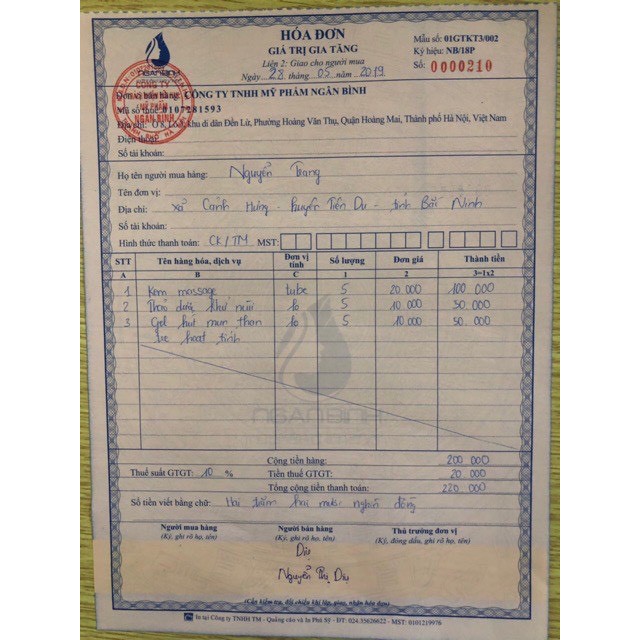 HÓA ĐƠN
GIÁ TRỊ GIA TĂNG
Liên 2: Giao cho người mua
Ngày 28 tháng 05 năm 2019
Mẫu số: 01GTKT3/002
Ký hiệu: NB/18P
Số: 0000210
NGANBINH
Đơn vị bán hàng: CÔNG TY TNHH MỸ PHẨM NGÂN BÌNH
Mã số thuế: 0107281593
Địa chỉ: Ô 8, Lô 3, khu di dân Đền Lừ, Phường Hoàng Văn Thụ, Quận Hoàng Mai, Thành phố Hà Nội, Việt Nam
Điện thoại:
Số tài khoản:
Họ tên người mua hàng: Nguyễn Trang
Tên đơn vị:
Địa chỉ: xã Cảnh Hưng - huyện Tiên Du - tỉnh Bắc Ninh
Số tài khoản:
Hình thức thanh toán: CK/TM MST:
STT Tên hàng hóa, dịch vụ Đơn vị tính Số lượng Đơn giá Thành tiền
A B C 1 2 3=1x2
1 Kem massage tube 5 20.000 100.000
2 Thảo dược khử mùi lọ 5 10.000 50.000
3 Gel hút mụn than lọ 5 10.000 50.000
tre hoạt tính
NGANBINH
Cộng tiền hàng: 200.000
Thuế suất GTGT: 10 % Tiền thuế GTGT: 20.000
Tổng cộng tiền thanh toán: 220.000
Số tiền viết bằng chữ: Hai trăm hai mươi nghìn đồng
Người mua hàng Người bán hàng Thủ trưởng đơn vị
(Ký, ghi rõ họ, tên) (Ký, ghi rõ họ, tên) (Ký, đóng dấu, ghi rõ họ, tên)
Dịu
Nguyễn Thị Dịu
(Cần kiểm tra, đối chiếu khi lập, giao, nhận hóa đơn)
In tại Công ty TNHH TM - Quảng cáo và In Phú Sỹ - ĐT: 024.35626622 - MST: 0101219976